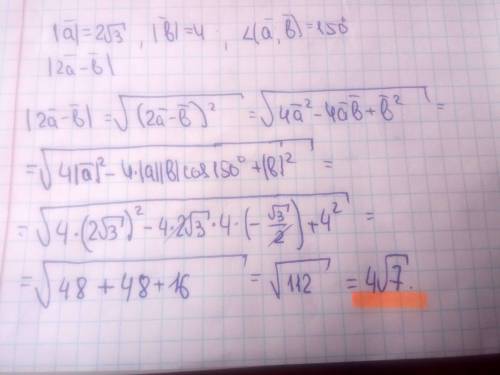 |a̅|=2√3 , |b̅|=4 , ∠(a̅, b̅)=150°
|2a̅-b̅|
|2a̅-b̅| = √((2a̅-b̅)²) = √(4a̅²-4a̅b̅+b̅²) =
= √(4|a̅|²-4·|a||b|cos150°+|b|²) =
= √(4·(2√3)²-4·2√3·4·(-√3/2)+4²) =
= √(48+48+16) = √112 = 4√7.